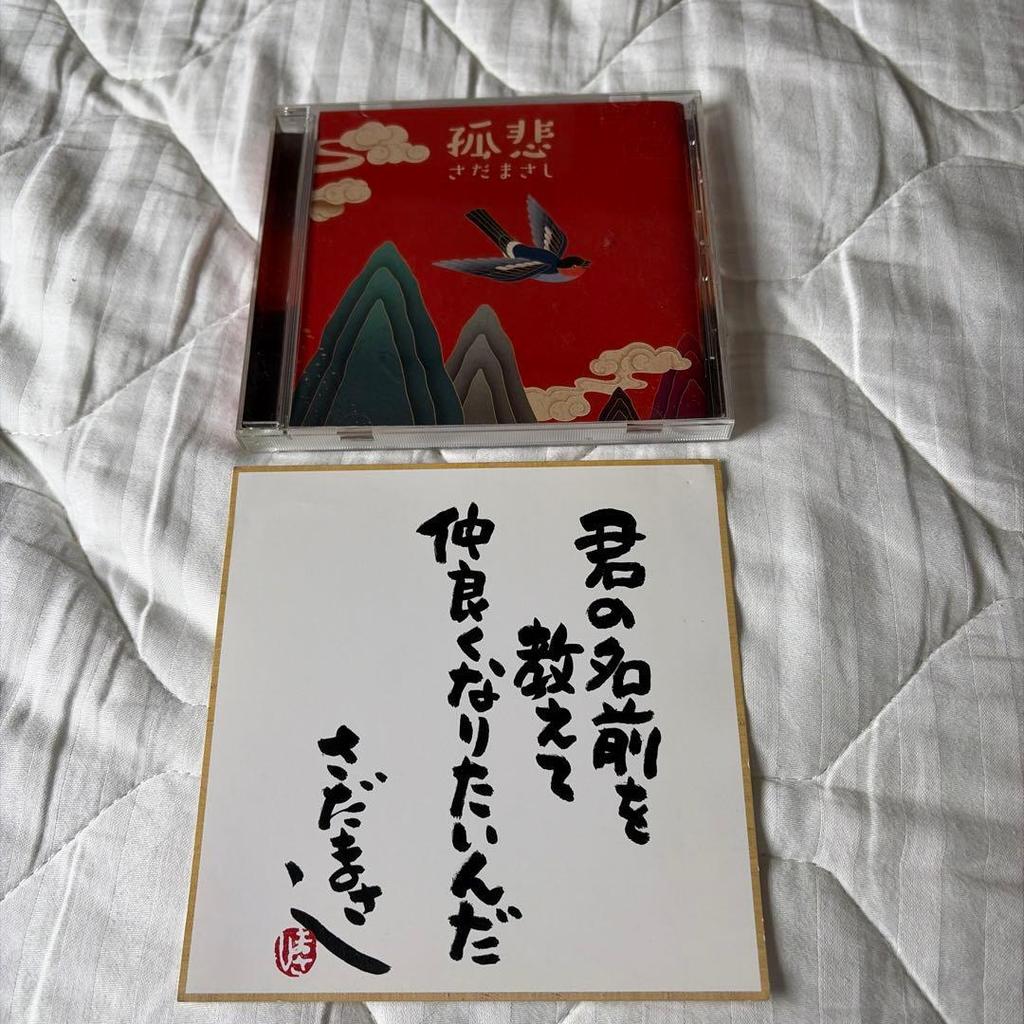 孤悲
さだまさし
君の名前を
教えて
仲良くなりたいんだ
さだまさし
まさし